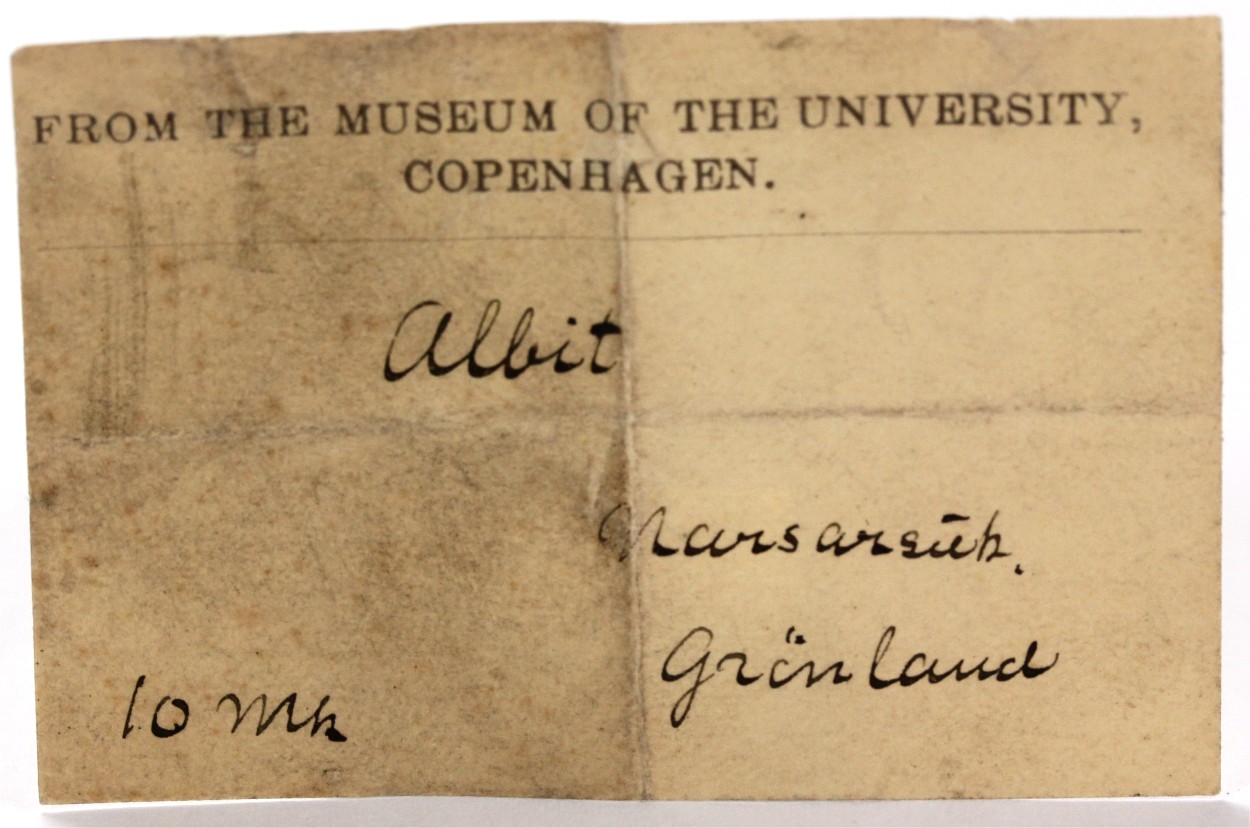 FROM THE MUSEUM OF THE UNIVERSITY,
COPENHAGEN.
Albit
Narsarsūk.
Grönland
10 Mk